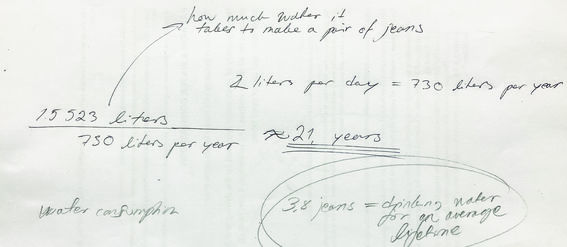 how much water it
takes to make a pair of jeans
2 liters per day = 730 liters per year
15523 liters
730 liters per year
≈ 21, years
water consumption
3,8 jeans = drinking water
for an average
lifetime